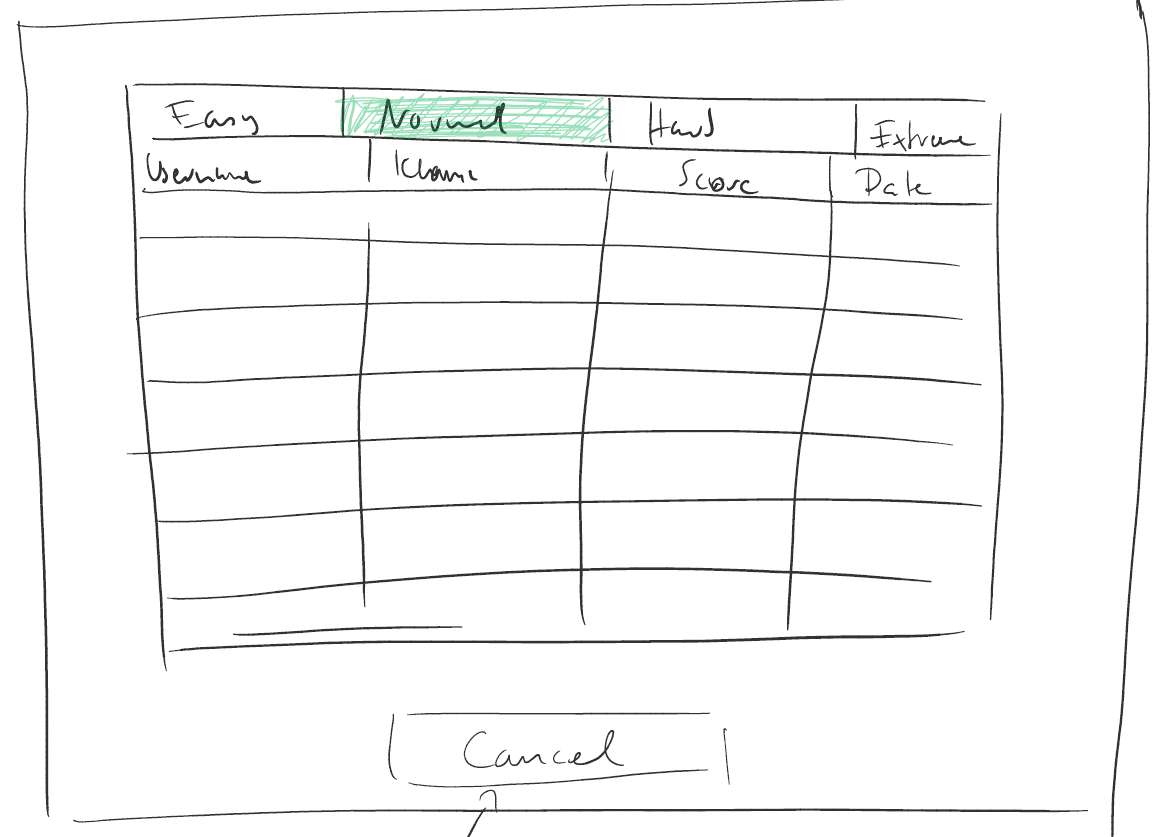 Easy Normal Hard Extreme
Username Score Date
Cancel